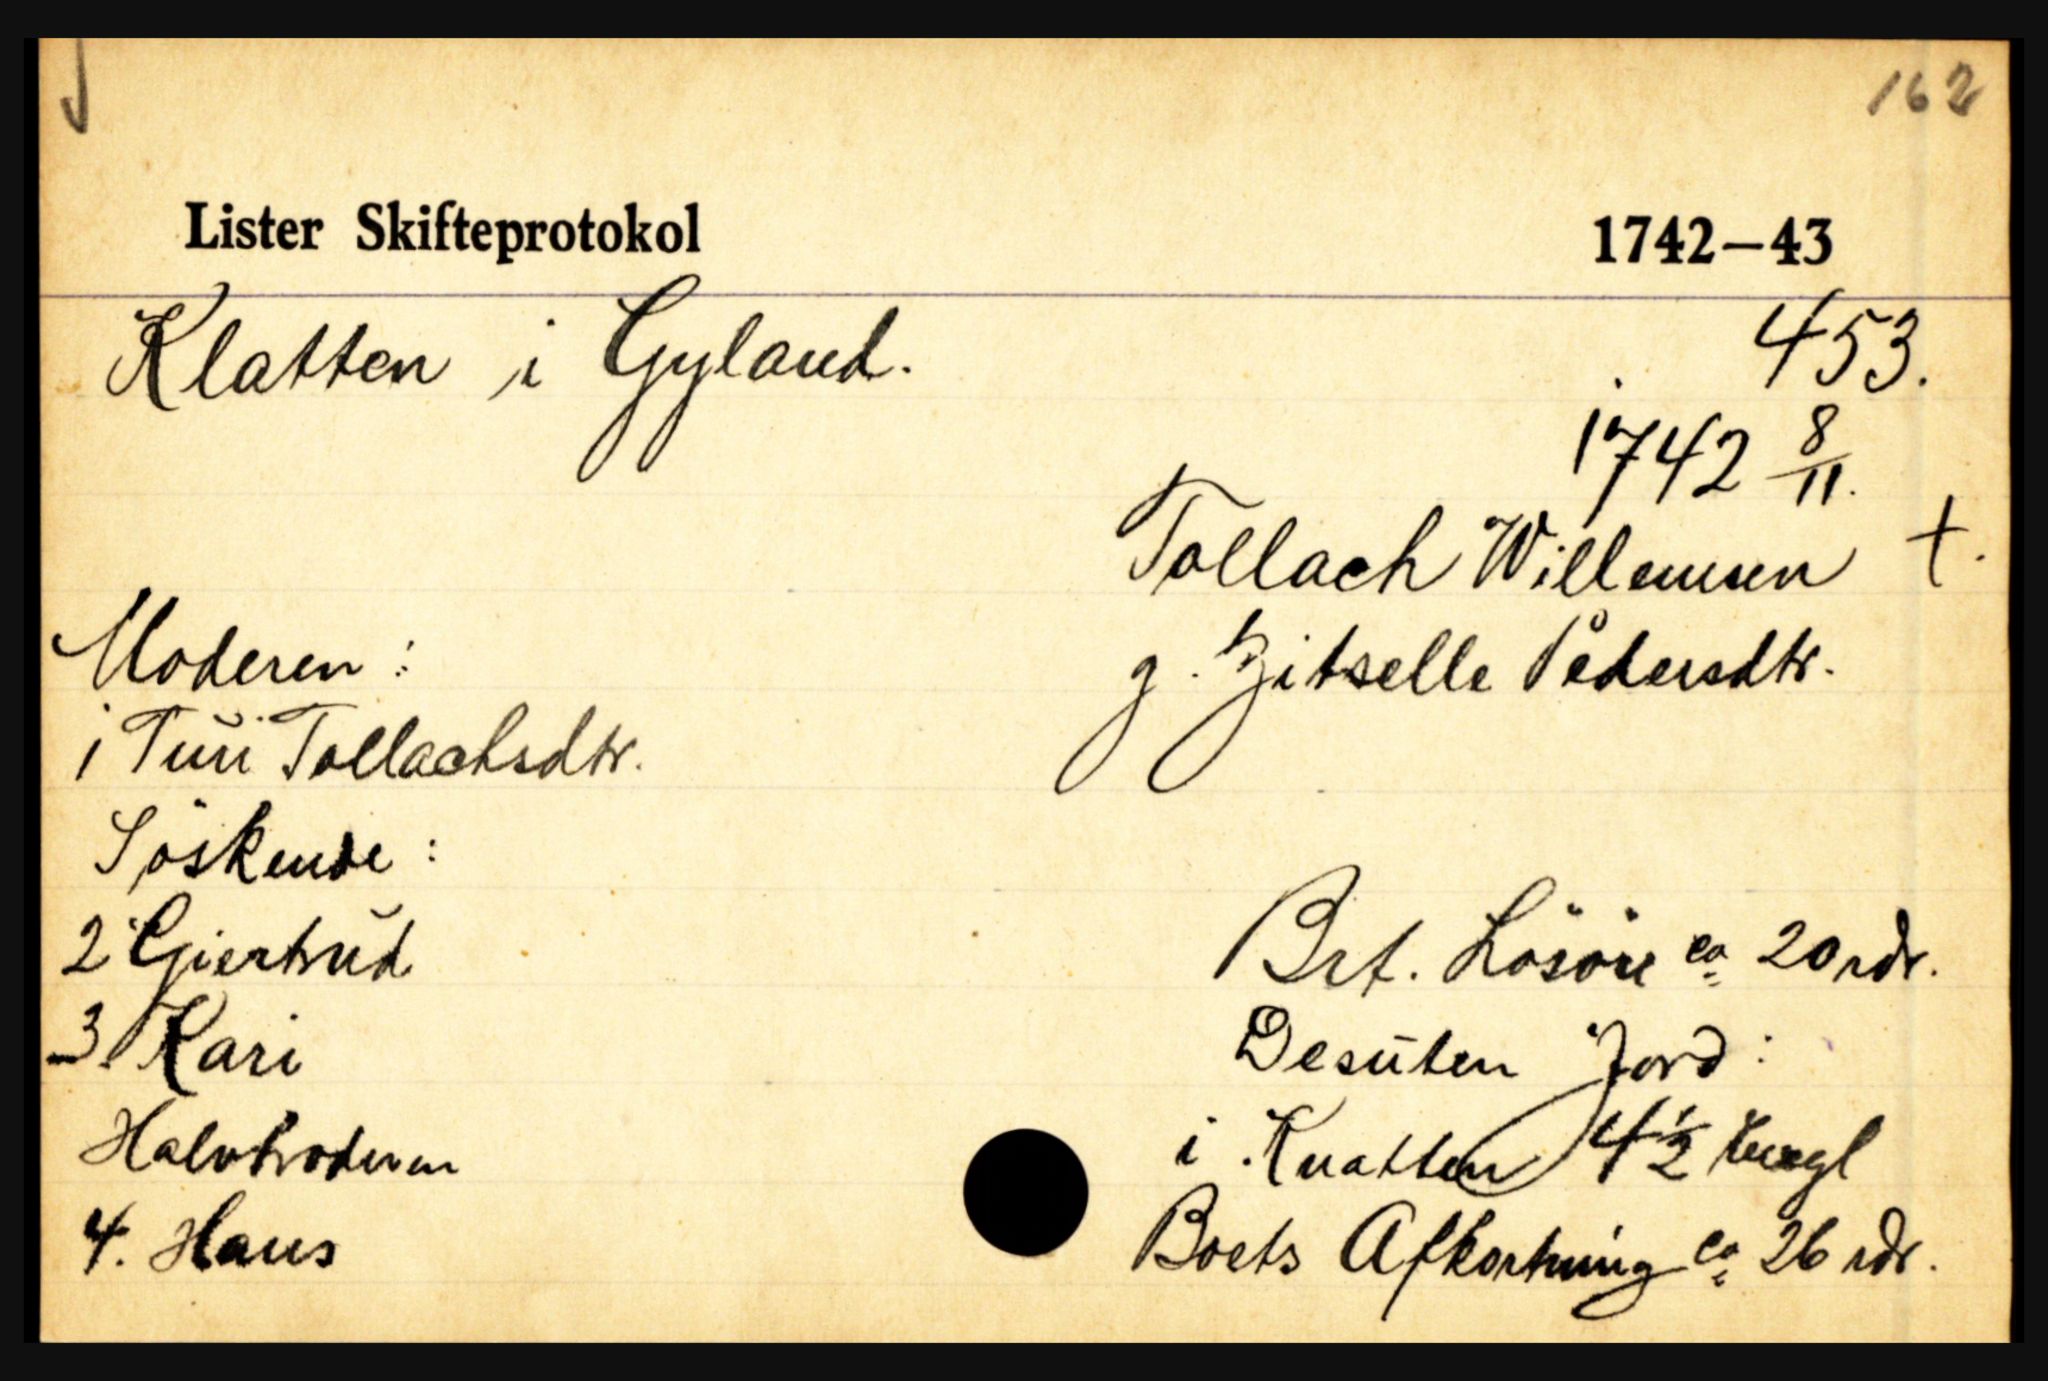 162
Lister Skifteprotokol 1742–43
Klatten i Gyland.
453.
1742 8/11.
Tollach Willemsen †.
g. Zitselle Pedersdtr.
Moderen:
1 Turi Tollachsdtr.
Söskende:
2 Giertrud
3. Kari
Halvbroderen
4. Hans
Brt. Lösöre ca 20 rdr.
Desuten Jord:
i Knatten 4½ Engl
Boets Afkortning ca 26 rdr.